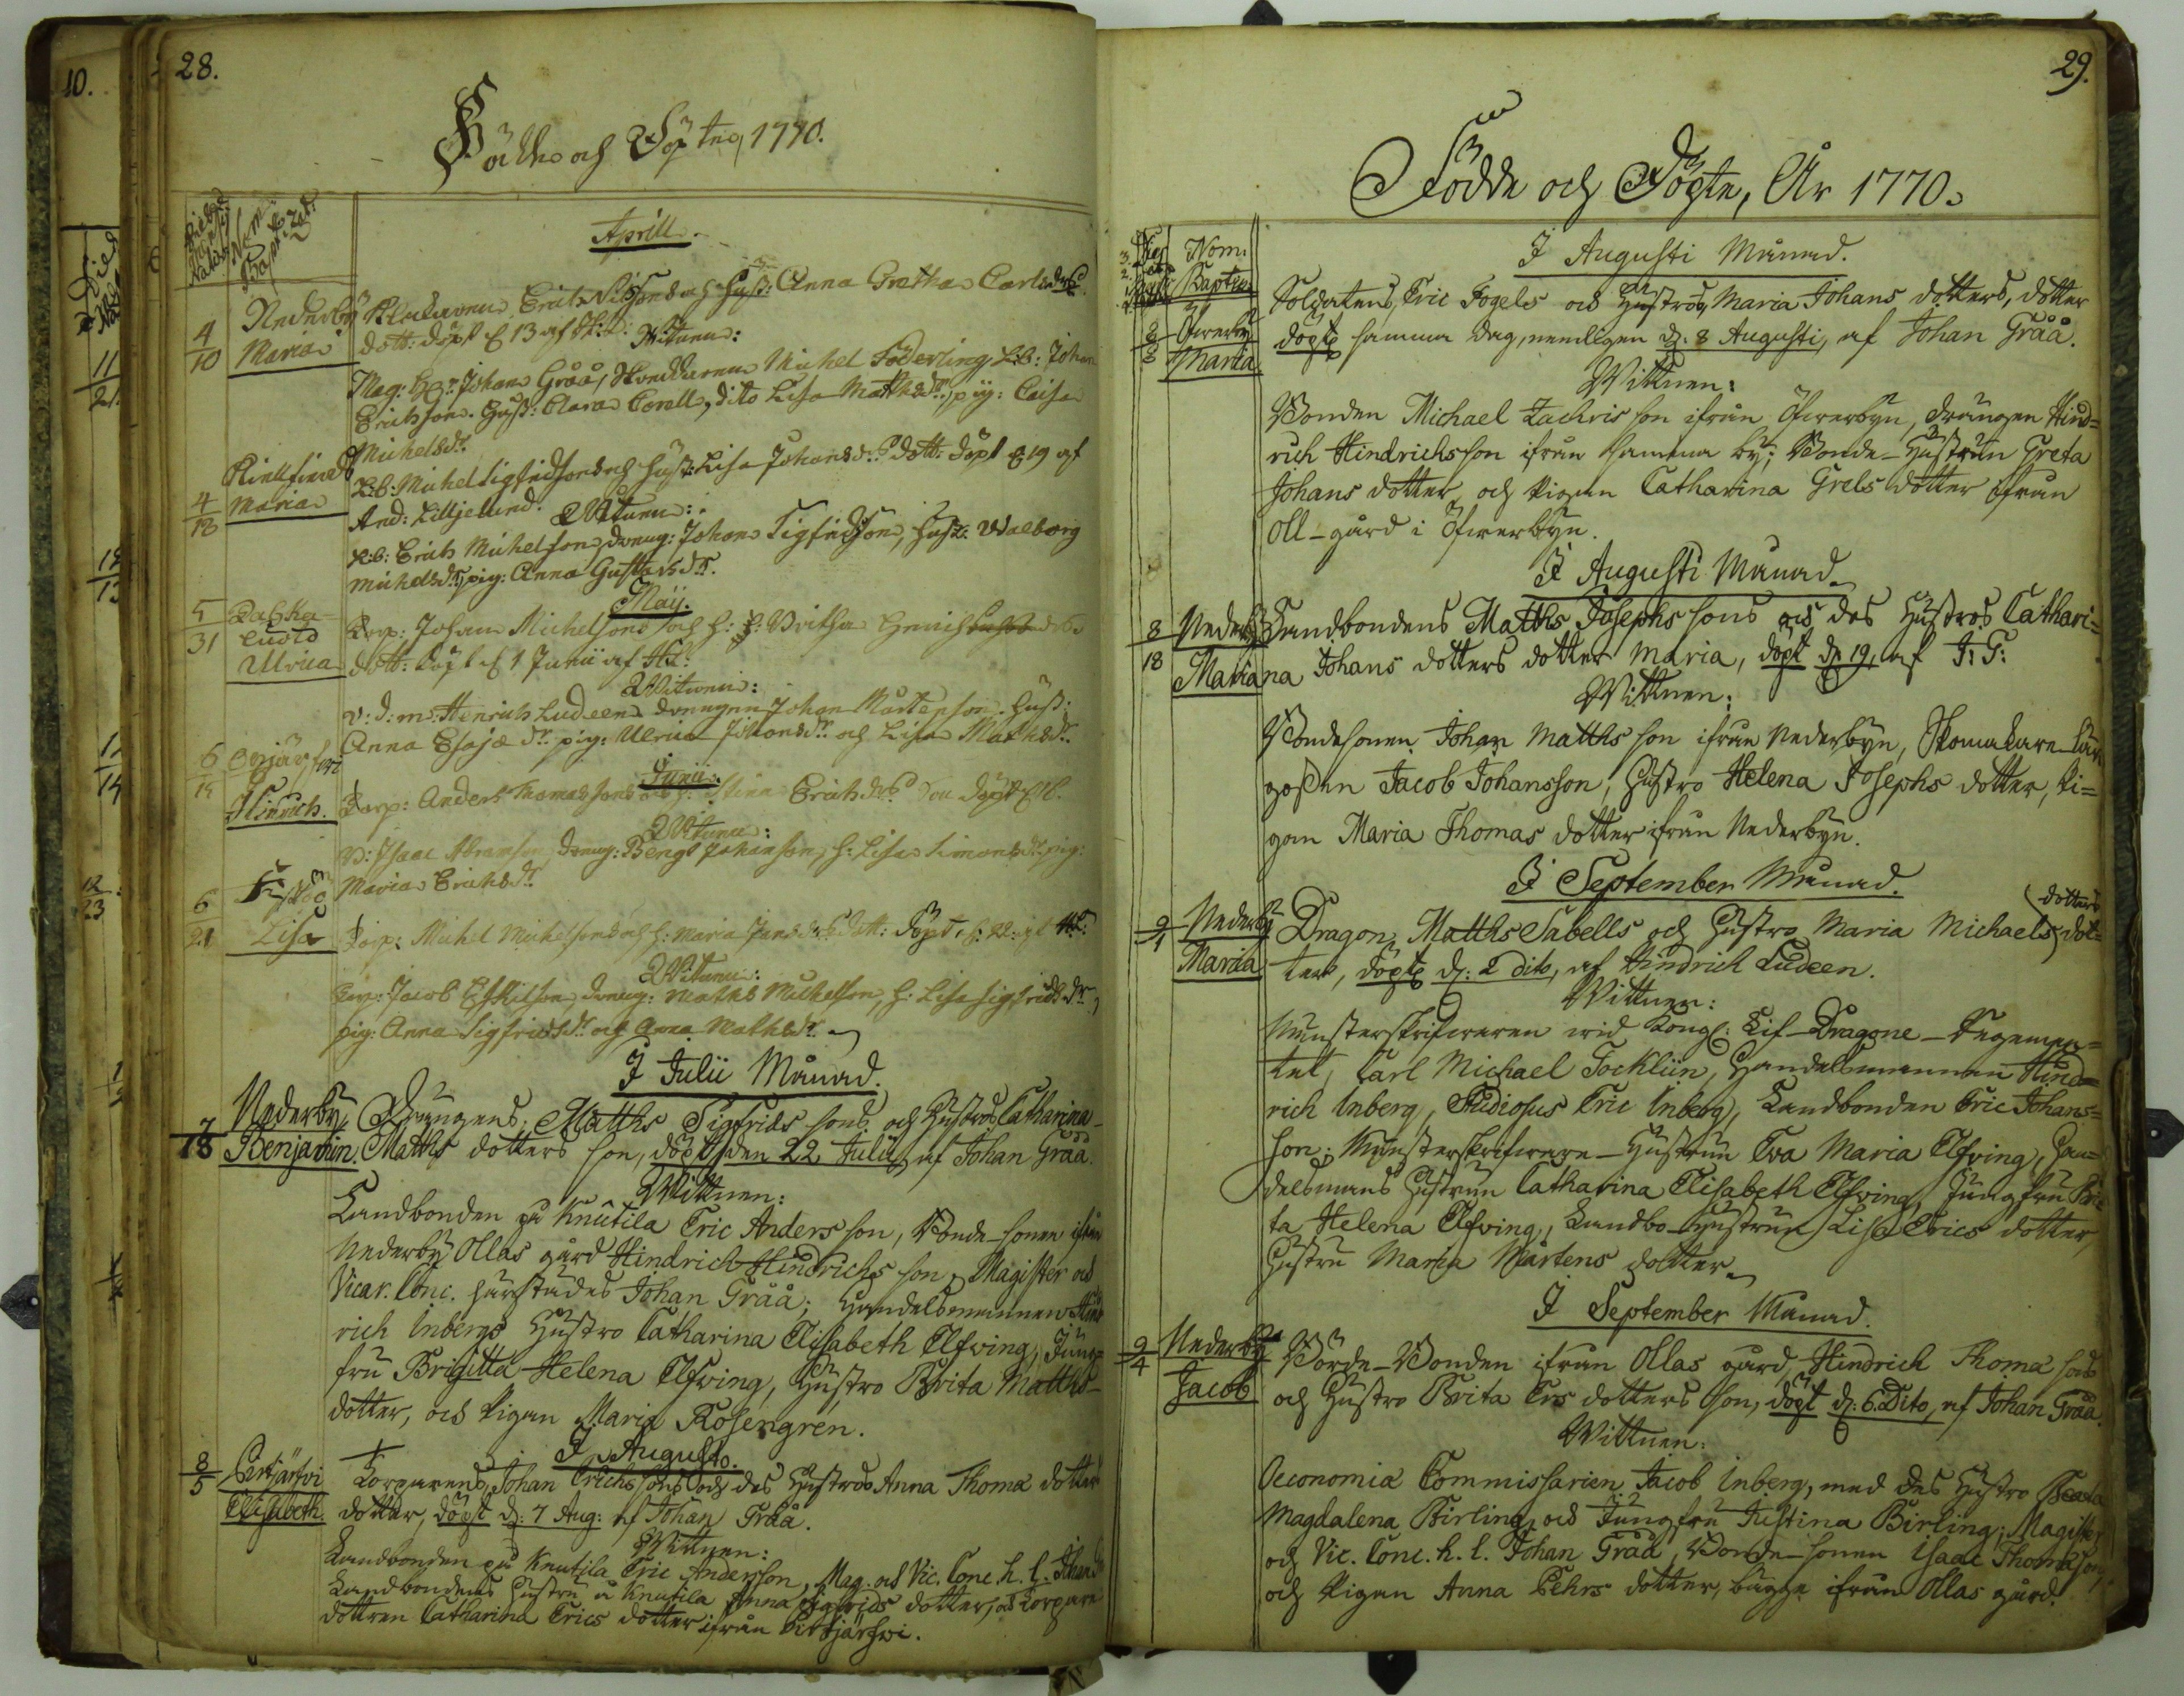 10.
28.
Födde och Döpte 1770.
Aprill.
4/10 Nederby Maria
Klockaren Erich Nilsons och Hust: Anna Gretha Carls drs
dott: döpt d 13 af
Witnen:
Mag: Hr Johan Gråå, Michel Söderling, Lb: Johan
Erichson. Hust: Clara Corell, dito Lisa Mathsdr, pig: Caisa
Michelsdr.
4/18 Maria
Lb: Michel Sigfridsons och Hust: Lisa Johansdrs dott: döpt d 19 af
And: Liljelund. Witnen:
Lb: Erich Michelson, dreng: Johan Sigfridson, Hust: Walborg
Michelsdr, pig: Anna Gustavsdr.
Maij.
5/31 Ulrica
Torp: Johan Michelsons och h: Britha
dott: döpt d 1 Junii af
Witnen:
v: d: m: Henrich Ludeen drengen Johan Mårtenson. Hust:
Anna Esajæ dr. pig: Ulrica Johansdr och Lisa Mathsdr.
Junii.
6 Hinrich.
Torp: Anders Thomassons och h: Stina Erichsdrs Son döpt
Witnen:
B: Isaac Abramson, dreng: Bengt Johanson, h: Lisa Simonsdr, pig:
Maria Erichsdr
6/21 Lisa
Torp: Michel Michelsons och h: Maria Jansdrs dott: Döpt d: 22 af
Witnen:
Torp: Jacob Eskilson, dreng: Maths Michelson, h: Lisa Sigfridsdr,
pig: Anna Sigfridsdr och Anna Mathsdr.
I Julii Månad.
7/18 Nederby, Drängens, Matths Sigfrids sons och Hustros Catharina
Benjamin. Matths dotters son, döpt den 22 Julii, af Johan Gråå.
Wittnen:
Landbonden på Knutila Eric Andersson, Bonde-sonen ifrån
Nederby Ollas gård Hindrich Hindrichs son, Magister och
Vicar. Conc. härstädes Johan Gråå; Handelsmannen Hind
rich Inbergs Hustro Catharina Elisabeth Elfving, Jung-
fru Brigitta Helena Elfving, Hustro Brita Matths-
dotter, och Pigan Maria Rosengren.
I Augusto.
8/5 Pirtjärfvi Elisabeth
Torparens, Johan Erichssons och des Hustros Anna Thomæ dotters
dotter, döpt d: 7 Aug: af Johan Gråå.
Wittnen:
Landbonden på Knutila Eric Andersson, Mag. och Vic. Conc. h. l. Johan
Landbondens Hustru å Knutila Anna Sigfrids dotter, och Torpare
dottren Catharina Erics dotter ifrån Pirttjärfwi.
29.
Födde och Döpte, År 1770.
Nom. Baptiz.
I Augusti Månad.
8/8 Öfwerby Maria
Soldatens, Eric Fogels och Hustros Maria Johans dotters, dotter
döpt samma dag, nemligen d. 8 Augusti, af Johan Gråå.
Wittnen:
Bonden Michael Zachris son ifrån Öfwerbyn, drängen Hind-
rich Hindrichsson ifrån samma by; Bonde-Hustrun Greta
Johans dotter, och Pigan Catharina Grels dotter ifrån
Oll-gård i Öfwerbyn.
I Augusti Månad.
8/18 Nederby Landbondens Matths Josephs sons och des Hustros Cathari-
Maria na Johans dotters dotter Maria, döpt d. 19, af J: G:
Wittnen:
Bondesonen Johan Matths son ifrån Nederbyn, Skomakare-lär
goßen Jacob Johansson, Hustro Helena Josephs dotter, Pi-
gan Maria Thomas dotter ifrån Nederbyn.
I September Månad.
9/1 Nederby Dragon, Matths Sabells och Hustro Maria Michaels dotters dot-
Maria ter, döpt d: 2 dito, af Hindrich Ludeen.
Wittnen:
Munsterskrifwaren wid Kongl: Lif-Dragone-Regemen-
tet, Carl Michael Tocklin, Handelsmannen Hind-
rich Inberg, Studiosus Eric Inberg, Landbonden Eric Johans-
son; Munsterskrifware-Hustrun Eva Maria Elfving, Han-
delsmans Hustrun Catharina Elisabeth Elfving, Jungfru Bri-
ta Helena Elfving, Landbo-Hustrun Lisa Erics dotter,
Hustru Maria Mårtens dotter.
I September Månad.
9/4 Nederby Jacob
Börde-Bonden ifrån Ollas gård, Hindrich Thomæ sons
och Hustro Brita Ers dotters son, döpt d: 6. Dito, af Johan Gråå.
Wittnen:
Oeconomiæ Commissarien Jacob Inberg, med des Hustro Beata
Magdalena Birling, och Jungfru Kistina Birling; Magister
och Vic. Conc. h. l. Johan Gråå, Bonde-sonen Isaac Thomæson,
och Pigan Anna Pehrs dotter, bägge ifrån Ollas gård.